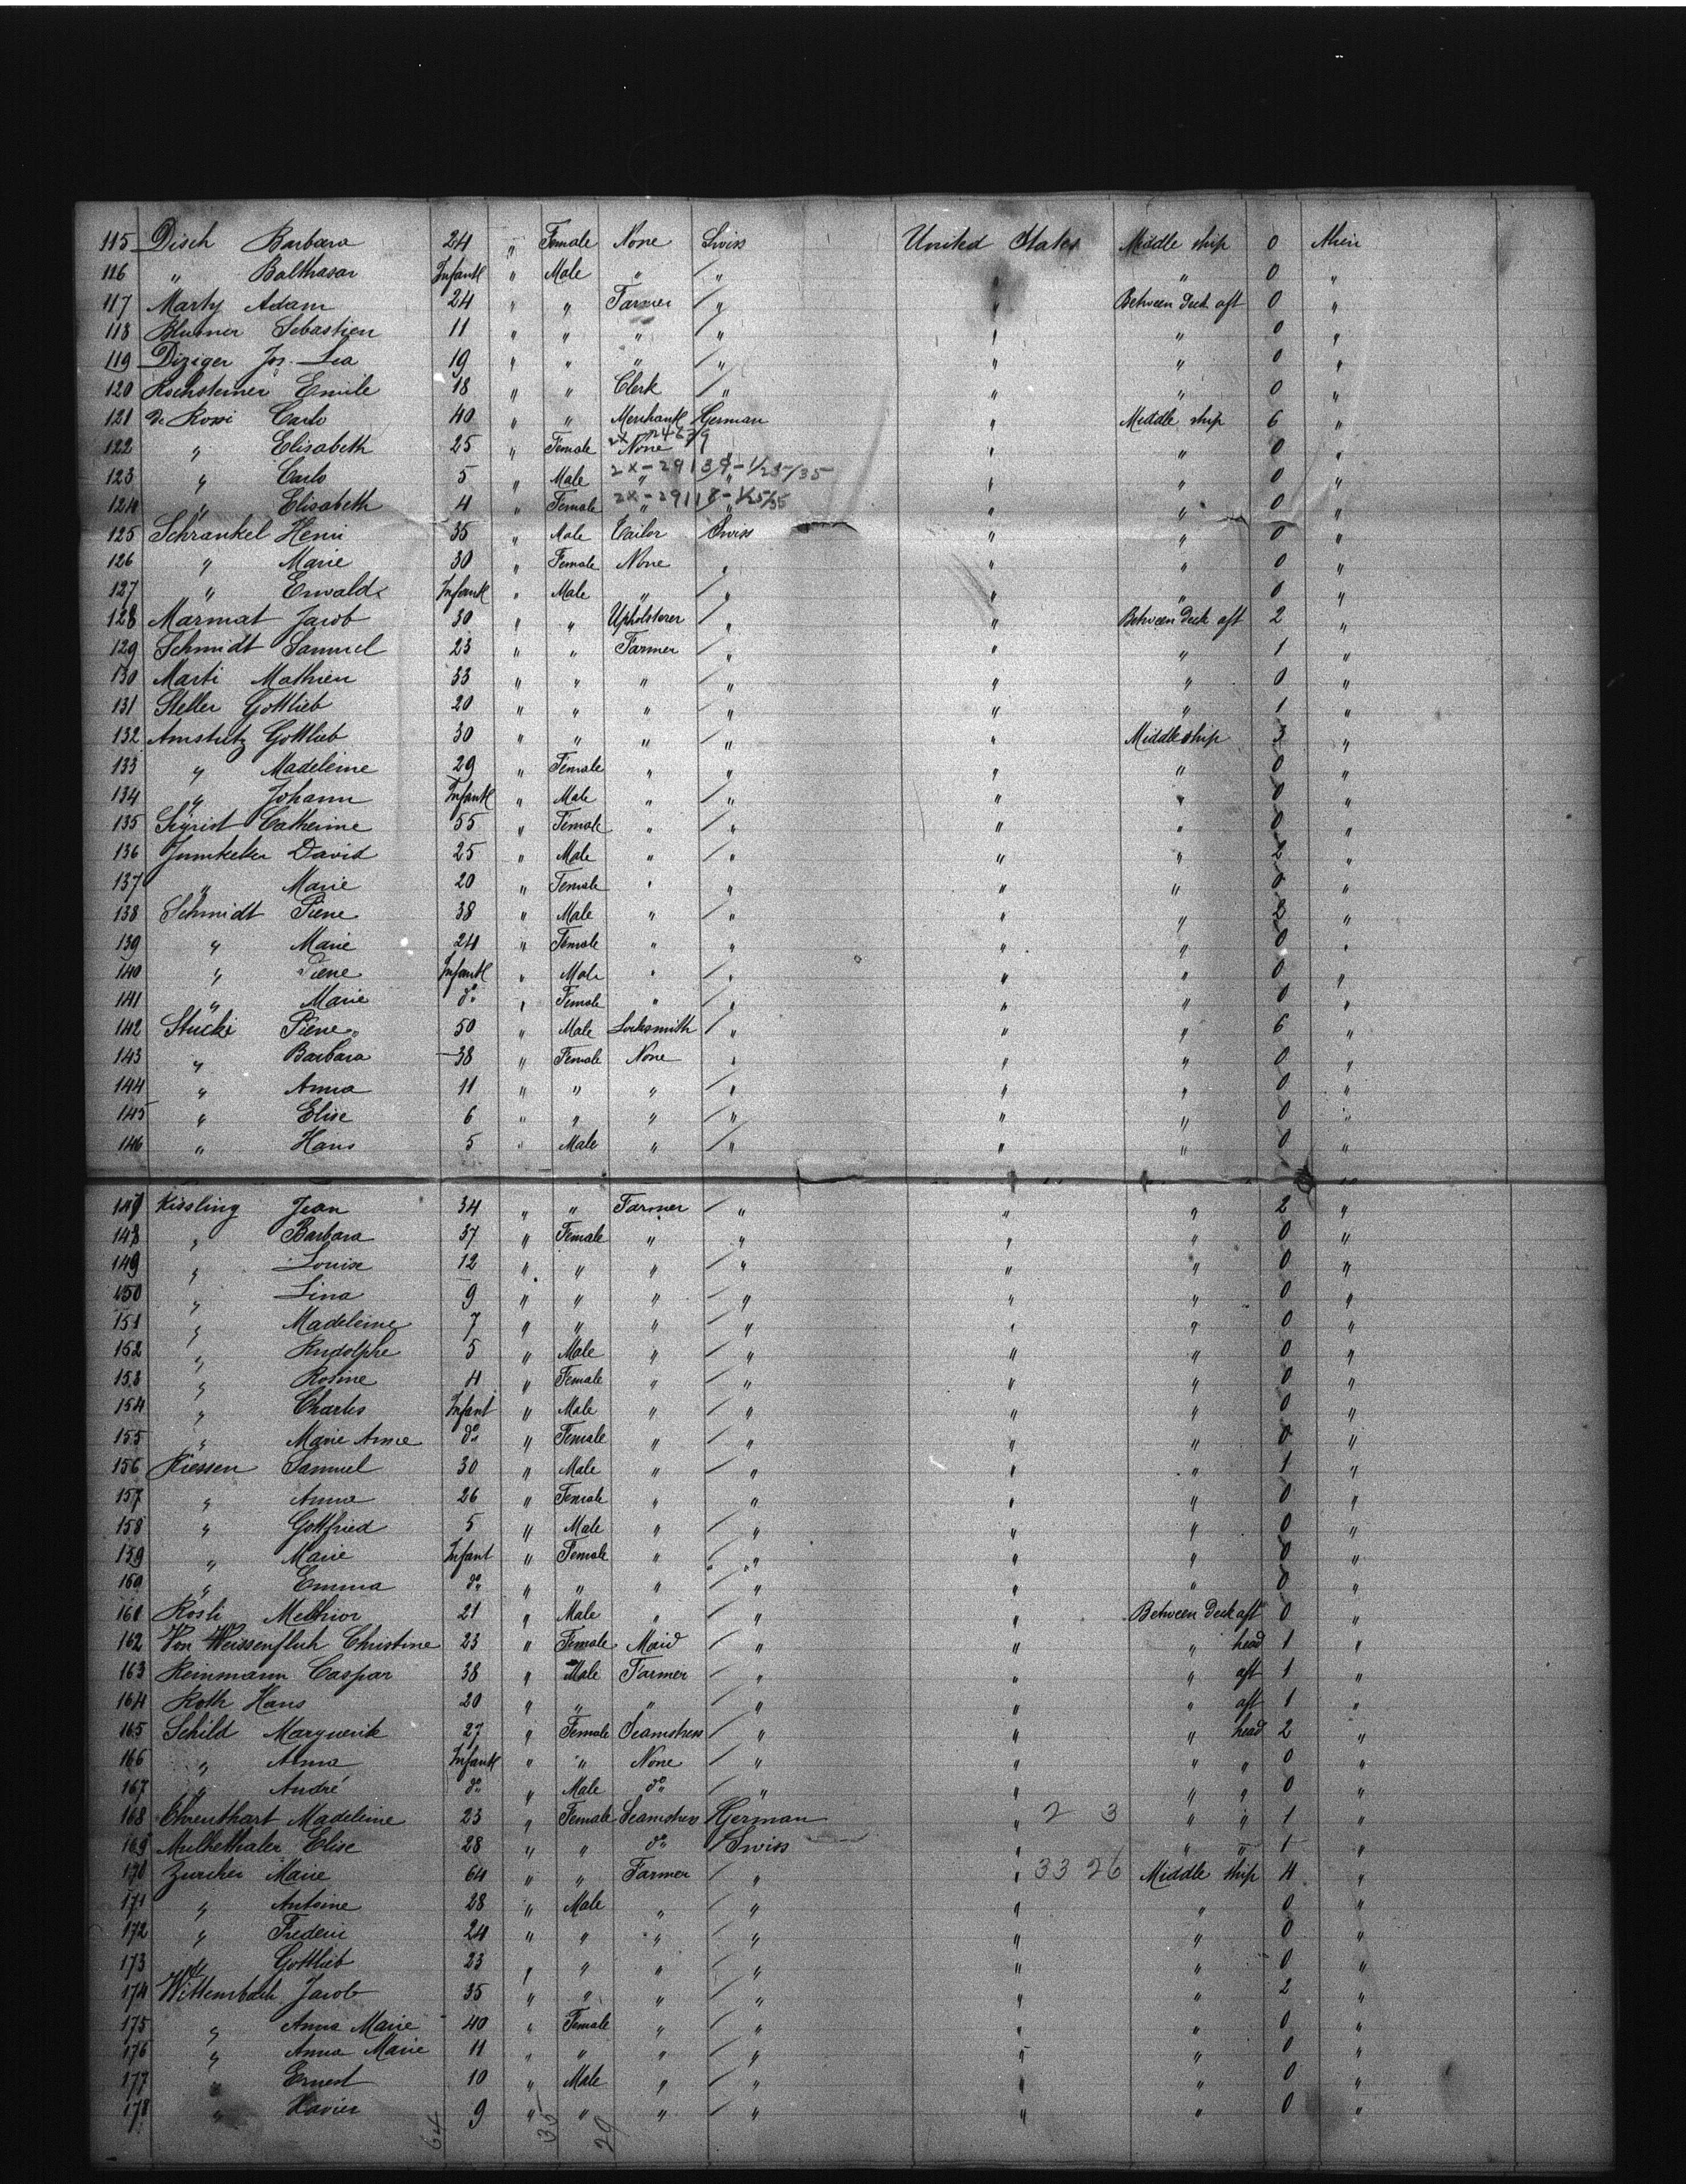 115 Disch Barbara 24 " Female None Swiss United States Middle ship 0 Alien
116 " Balthasar Infant " Male " " " " 0 "
117 Marty Adam 24 " " Farmer " " Between Deck aft 0 "
118 Blumer Sebastien 11 " " " " " " 0 "
119 Diziger Jos. Lea 19 " " " " " " 0 "
120 Emile 18 " " Clerk " " " 0 "
121 De Rossi Carlo 40 " " Merchant German " Middle ship 6 "
122 " Elisabeth 25 " Female None " " 0 "
123 " Carlo 5 " Male " 2X-29139-1/25/35 " " " 0 "
124 " Elisabeth 4 " Female " 2X-29118-1/25/35 " " " 0 "
125 Schrankel Henri 35 " Male Tailor Swiss " " 0 "
126 " Marie 30 " Female None " " " 0 "
127 " Erwald Infant " Male " " " " 0 "
128 Marmat Jacob 30 " " Upholsterer " " Between Deck aft 2 "
129 Schmidt Samuel 23 " " Farmer " " " 1 "
130 Marti Mathieu 33 " " " " " " 0 "
131 Steller Gottlieb 20 " " " " " " 1 "
132 Amstutz Gottlieb 30 " " " " " Middle ship 3 "
133 " Madeleine 29 " Female " " " " 0 "
134 " Johann Infant " Male " " " " 0 "
135 Sigrist Catherine 55 " Female " " " " 0 "
136 Junkeler David 25 " Male " " " " 2 "
137 " Marie 20 " Female " " " " 0 "
138 Schmidt Pierre 38 " Male " " " " 2 "
139 " Marie 24 " Female " " " " 0 "
140 " Pierre Infant " Male " " " " 0 "
141 " Marie do " Female " " " " 0 "
142 Stucki Pierre 50 " Male Locksmith " " " 6 "
143 " Barbara 38 " Female None " " " 0 "
144 " Anna 11 " " " " " " 0 "
145 " Elise 6 " " " " " " 0 "
146 " Hans 5 " Male " " " " 0 "
147 Kissling Jean 34 " " Farmer " " " 2 "
148 " Barbara 37 " Female " " " " 0 "
149 " Louise 12 " " " " " " 0 "
150 " Lina 9 " " " " " " 0 "
151 " Madeleine 7 " " " " " " 0 "
152 " Rudolphe 5 " Male " " " " 0 "
153 " Rosine 4 " Female " " " " 0 "
154 " Charles Infant " Male " " " " 0 "
155 " Marie Anne do " Female " " " " 0 "
156 Kiessen Samuel 30 " Male " " " " 1 "
157 " Anna 26 " Female " " " " 0 "
158 " Gottfried 5 " Male " " " " 0 "
159 " Marie Infant " Female " " " " 0 "
160 " Emma do " " " " " " 0 "
161 Rösli Melchior 21 " Male " " " Between Deck aft 0 "
162 Von Weissenfluh Christine 23 " Female Maid " " " head 1 "
163 Reinmann Caspar 38 " Male Farmer " " " aft 1 "
164 Roth Hans 20 " " " " " " aft 1 "
165 Schild Marguerite 27 " Female Seamstress " " " head 2 "
166 " Anna Infant " " None " " " " 0 "
167 " André do " Male do " " " " 0 "
168 Ehrenthart Madeleine 23 " Female Seamstress German " 2 3 " " 1 "
169 Mulhethaler Elise 28 " " do Swiss " " " 1 "
170 Zurcher Marie 64 " " Farmer " " 33 26 Middle ship 4 "
171 " Antoine 28 " Male " " " " 0 "
172 " Frederic 24 " " " " " " 0 "
173 " Gottlieb 23 " " " " " " 0 "
174 Wittembach Jacob 35 " " " " " " 2 "
175 " Anna Marie 40 " Female " " " " 0 "
176 " Anna Marie 11 " " " " " " 0 "
177 " Ernest 10 " Male " " " " 0 "
178 " Xavier 9 " " " " " " 0 "
64 35 29